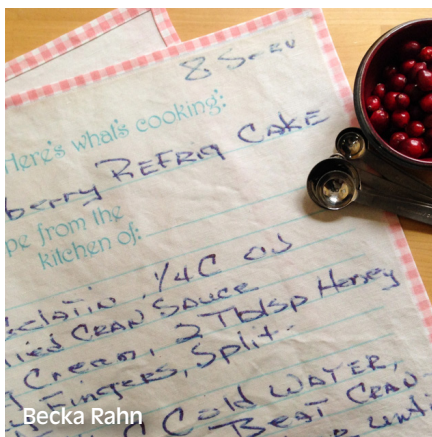 8 S
Here's what's cooking:
berry REFRIG CAKE
pe from the
kitchen of:
elatin 1/4 C
llied CRAN SAUCE
CREAM, 2 Tblsp Honey
Fingers, Split
Cold WATER,
BEAT CRAN-
until
Becka Rahn